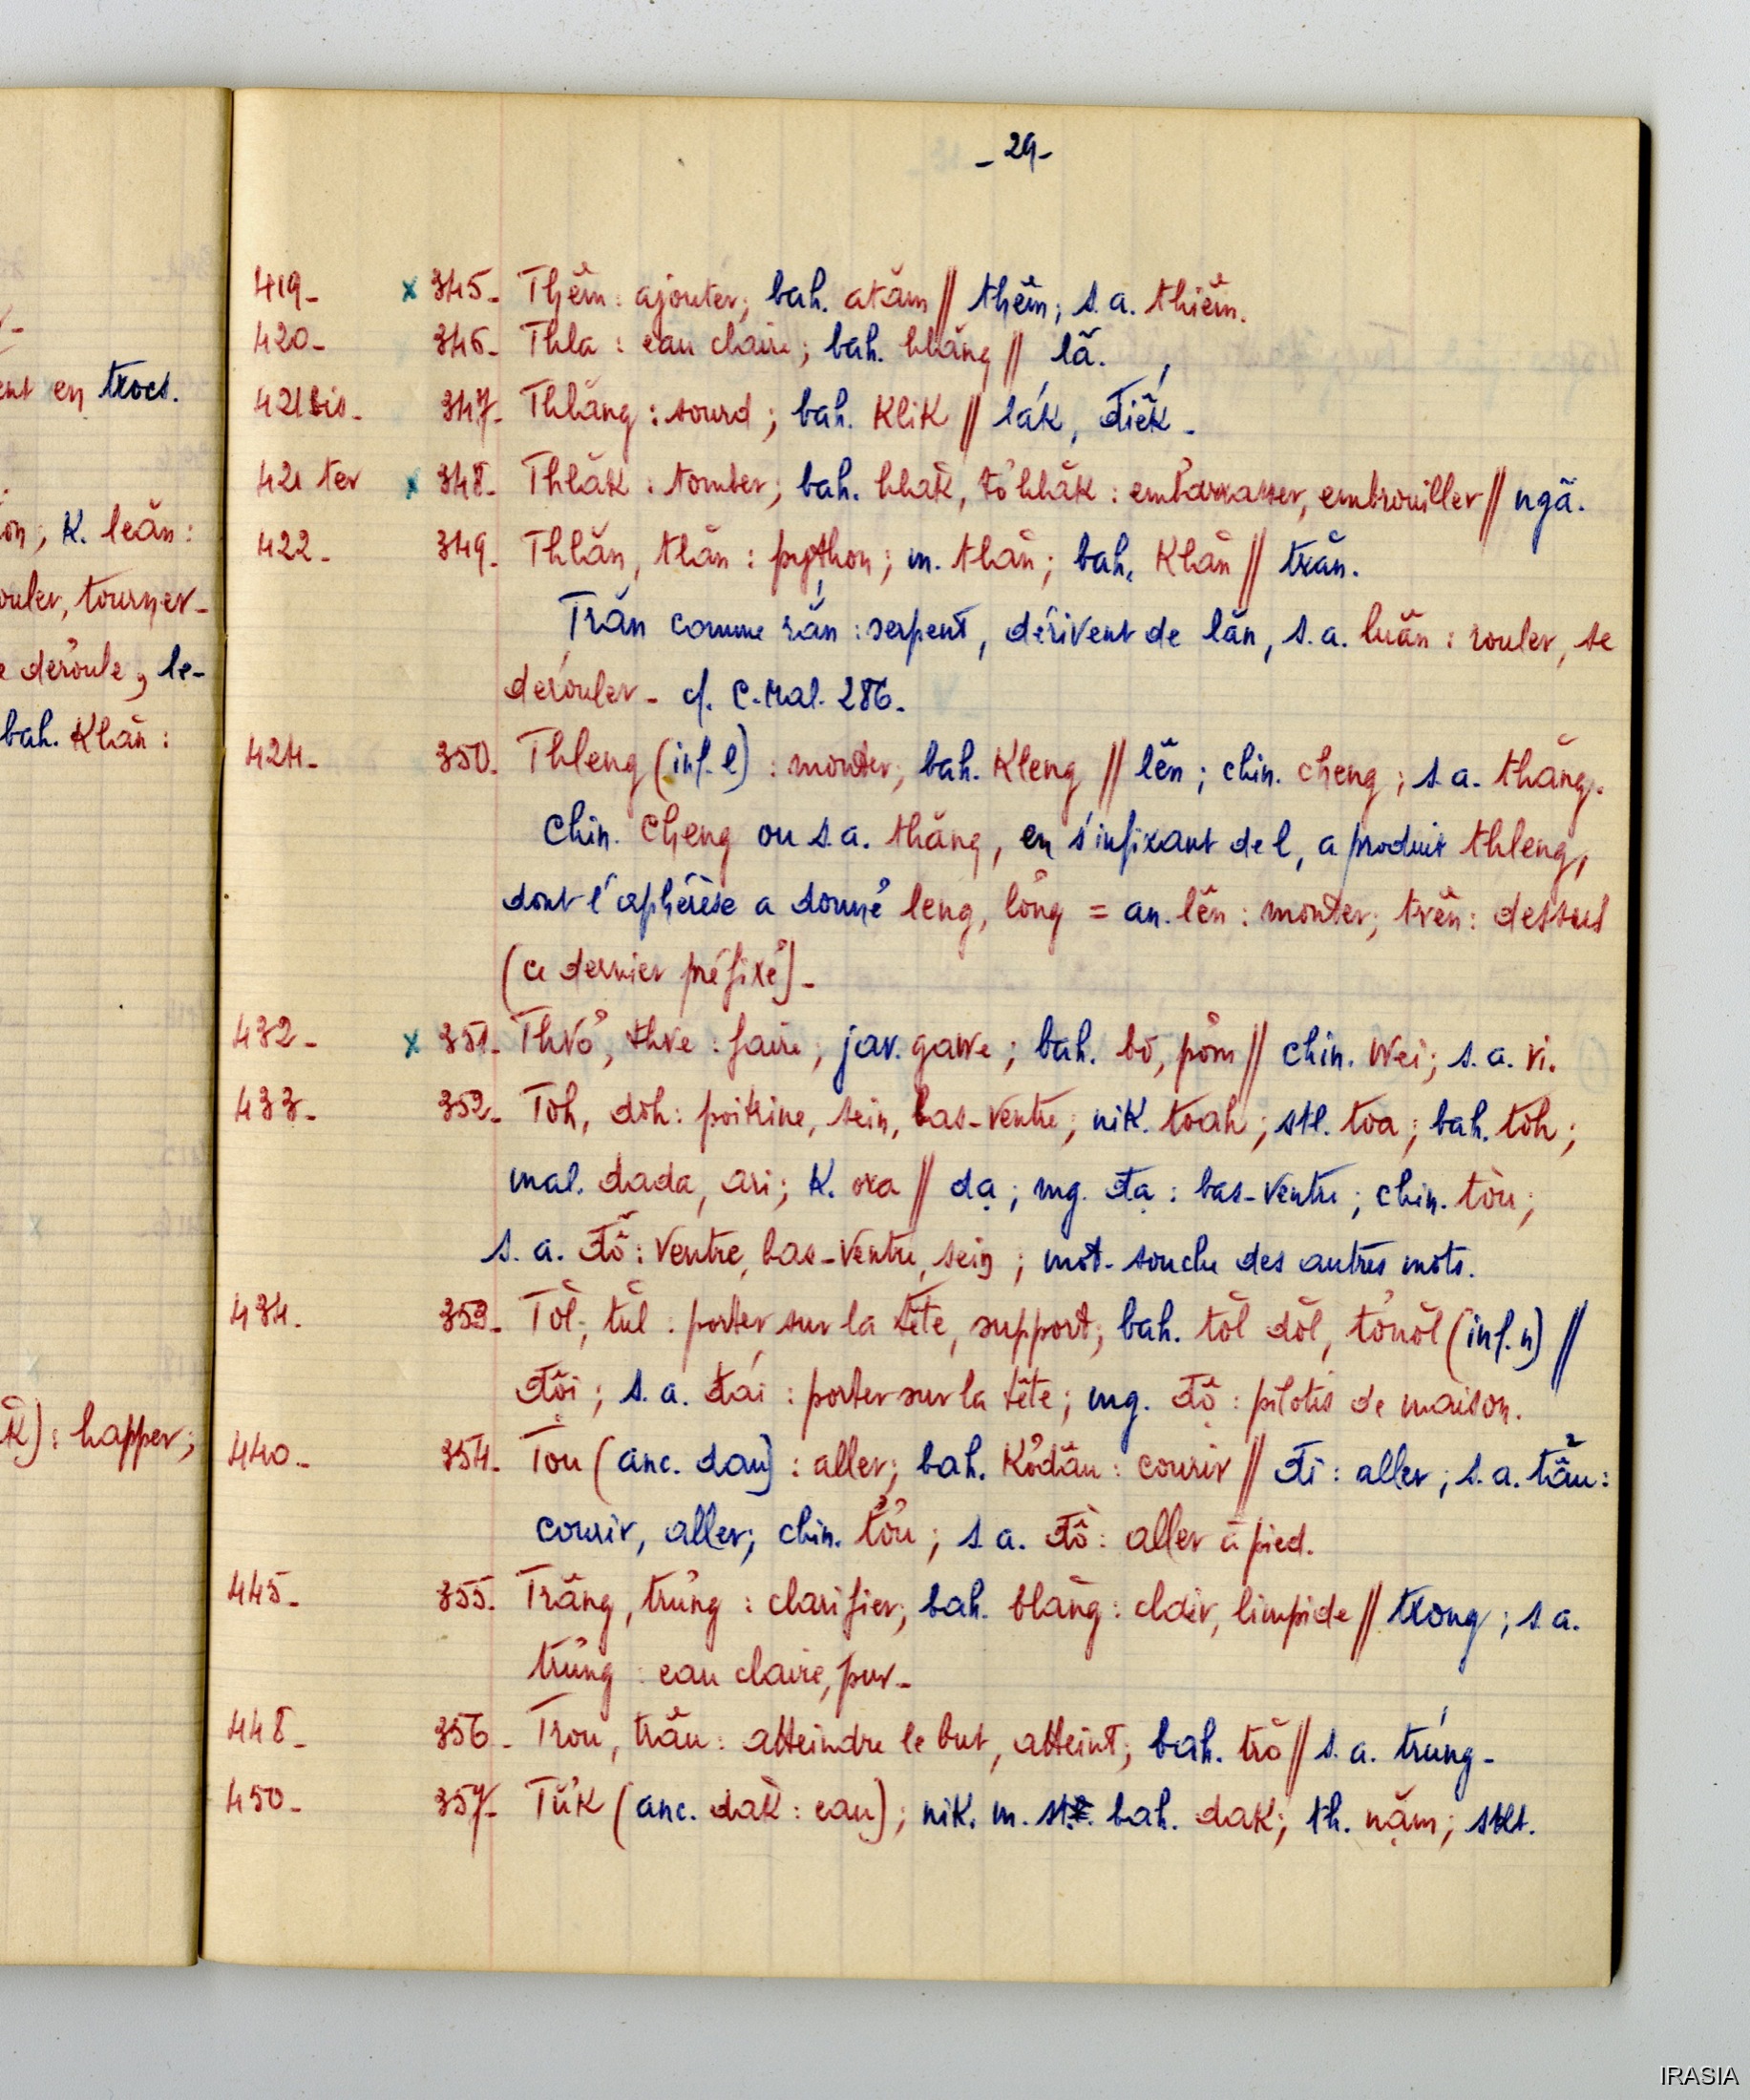 - 29 -
419- x 345- Thêm : ajouter; bah. atăm // thêm; s.a. thiêm.
420- 346- Thla : eau claire; bah. hlăng // lã.
421 bis- 347- Thlăng : sourd; bah. klik // lák, điếk -
421 ter x 348- Thlăk : tomber; bah. hlăk, tơ̆hlăk : embarrasser, embrouiller // ngã.
422- 349- Thlăn, tlăn : python; m. tlăn; bah. Klăn // trăn.
Trăn comme rắn : serpent, dérivent de lăn, s.a. luăn : rouler, se
dérouler - cf. C. Mal. 286.
424- 350- Thleng (inf. l) : monter; bah. Kleng // lên; chin. cheng; s.a. thăng.
chin. cheng ou s.a. thăng, en s'infixant de l, a produit thleng,
dont l'aphérèse a donné leng, lơ̆ng = an. lên : monter; trên : dessus
(ce dernier préfixé) -
432- x 351- Thvơ̆, thve : faire; jav. gawe; bah. bơ̆, pơ̆m // chin. wei; s.a. vi.
433- 352- Tŏh, dŏh : poitrine, sein, bas-ventre; nik. toah; stl. toa; bah. tŏh;
mal. dada, ari; K. oxa // dạ; mg. đạ : bas-ventre; chin. tòu;
s.a. đỗ : ventre, bas-ventre, sein; mot-souche des autres mots.
434- 353- Tŏl, tŭl : porter sur la tête, support; bah. tŏl dŏl, tơ̆nŏl (inf. n) //
đội; s.a. đái : porter sur la tête; mg. đô : pilotis de maison.
440- 354- Tou (anc. dau) : aller; bah. Kơ̆dău : courir // đi : aller; s.a. tẩu :
courir, aller; chin. tơ̆u; s.a. đồ : aller à pied.
445- 355- Trăng, trŭng : clarifier; bah. blăng : clair, limpide // trong; s.a.
trŭng : eau claire, pur -
448- 356- Trou, trău : atteindre le but, atteint; bah. trŏ // s.a. trúng -
450- 357- Tŭk (anc. dăk : eau); nik. m. bah. dak; th. nặm; stkt.
ent en trocs.
on; K. leăn :
ouler, tourner-
e déroule, le-
bah. Khăn :
k) : happer;
IRASIA